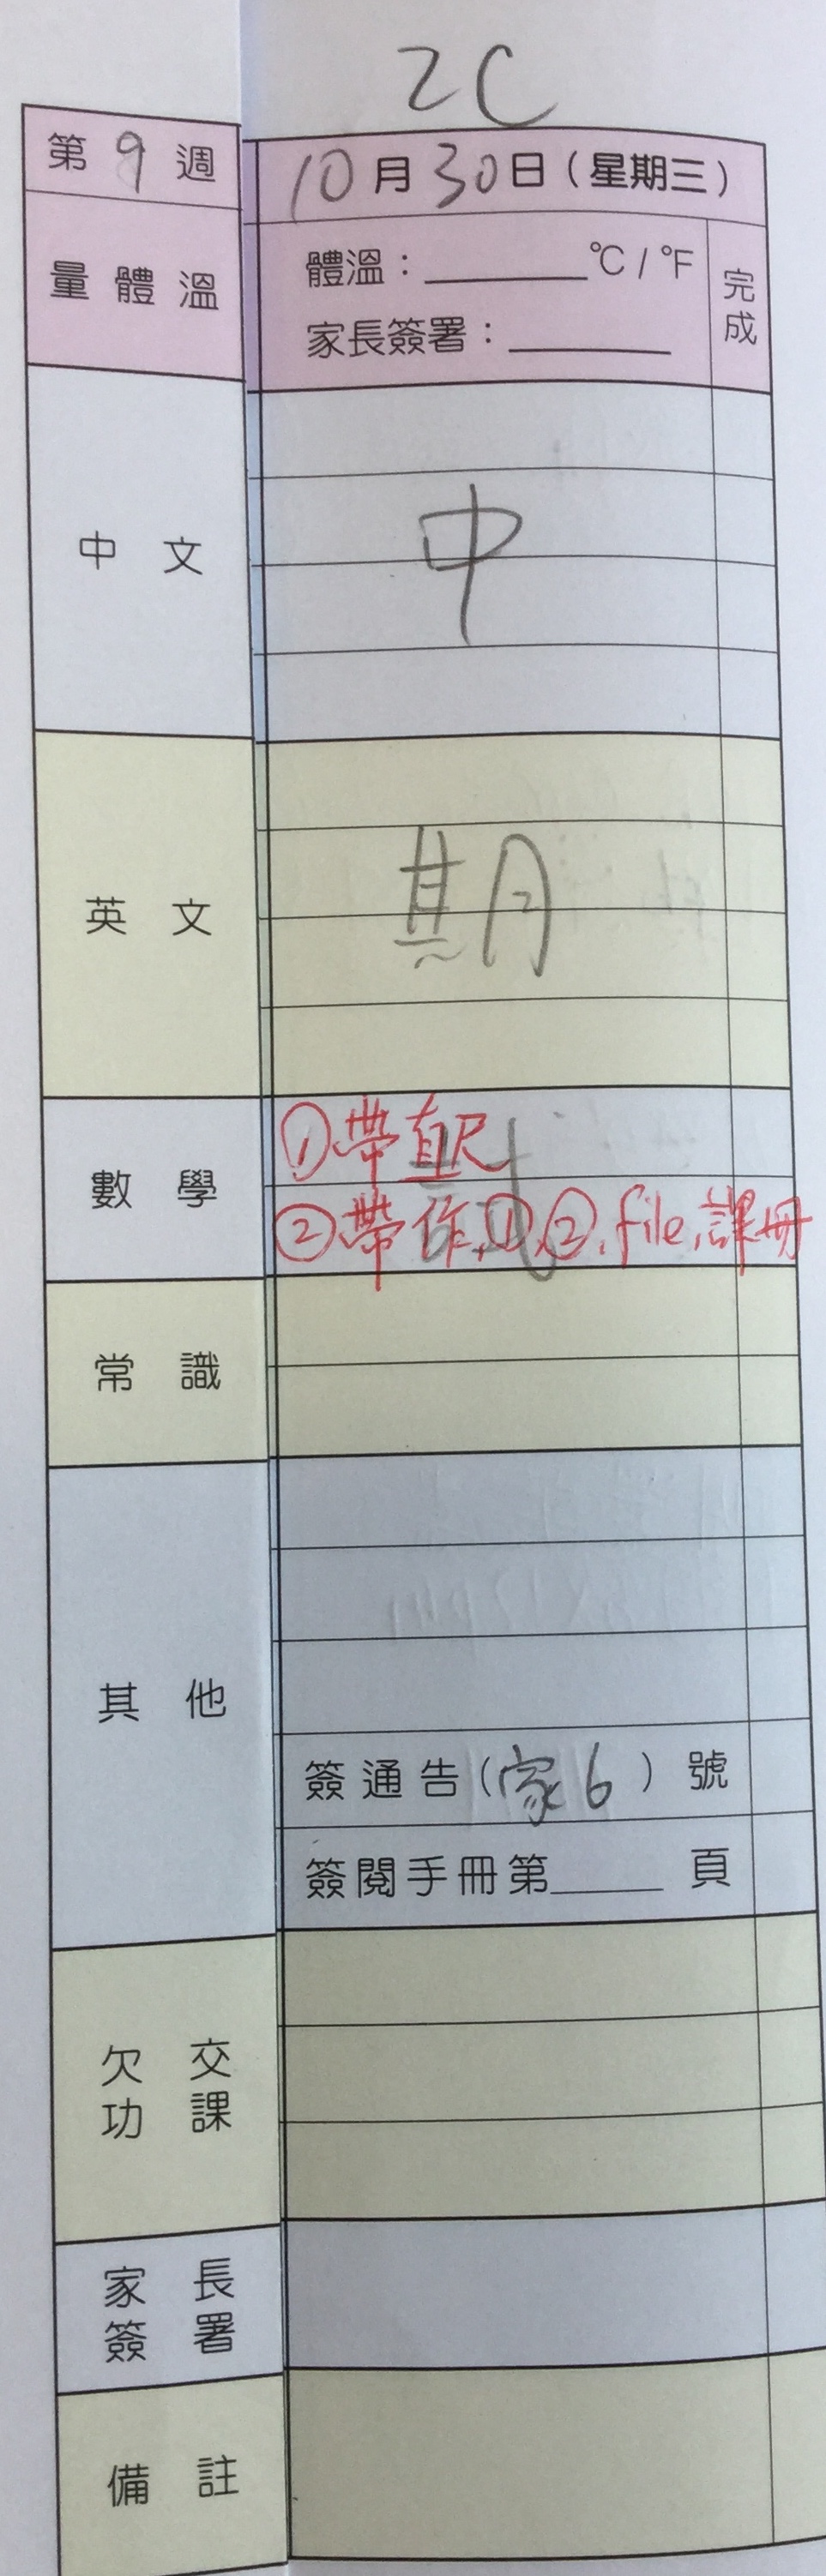 2C
第 9 週
10月30日（星期三）
量體溫
體溫：______°C / °F
家長簽署：______
完成
中文
中
英文
期
數學
①帶直尺
試
②帶作,①,②,file,課冊
常識
其他
簽通告（家6）號
簽閱手冊第____頁
欠交
功課
家長
簽署
備註